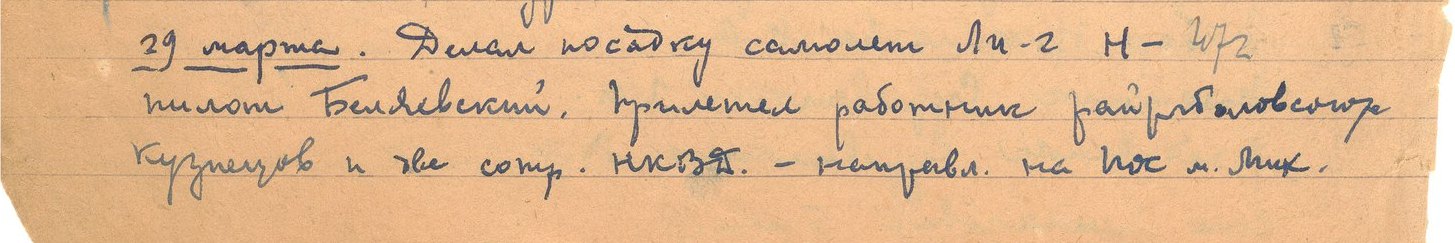 29 марта. Делал посадку самолет Ли-2 Н-472
пилот Беляевский. Прилетел работник
Кузнецов и две сотр. НКВД. - направл. на м. Мик.